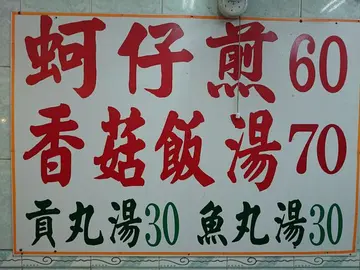 蚵仔煎60
香菇飯湯70
貢丸湯30 魚丸湯30